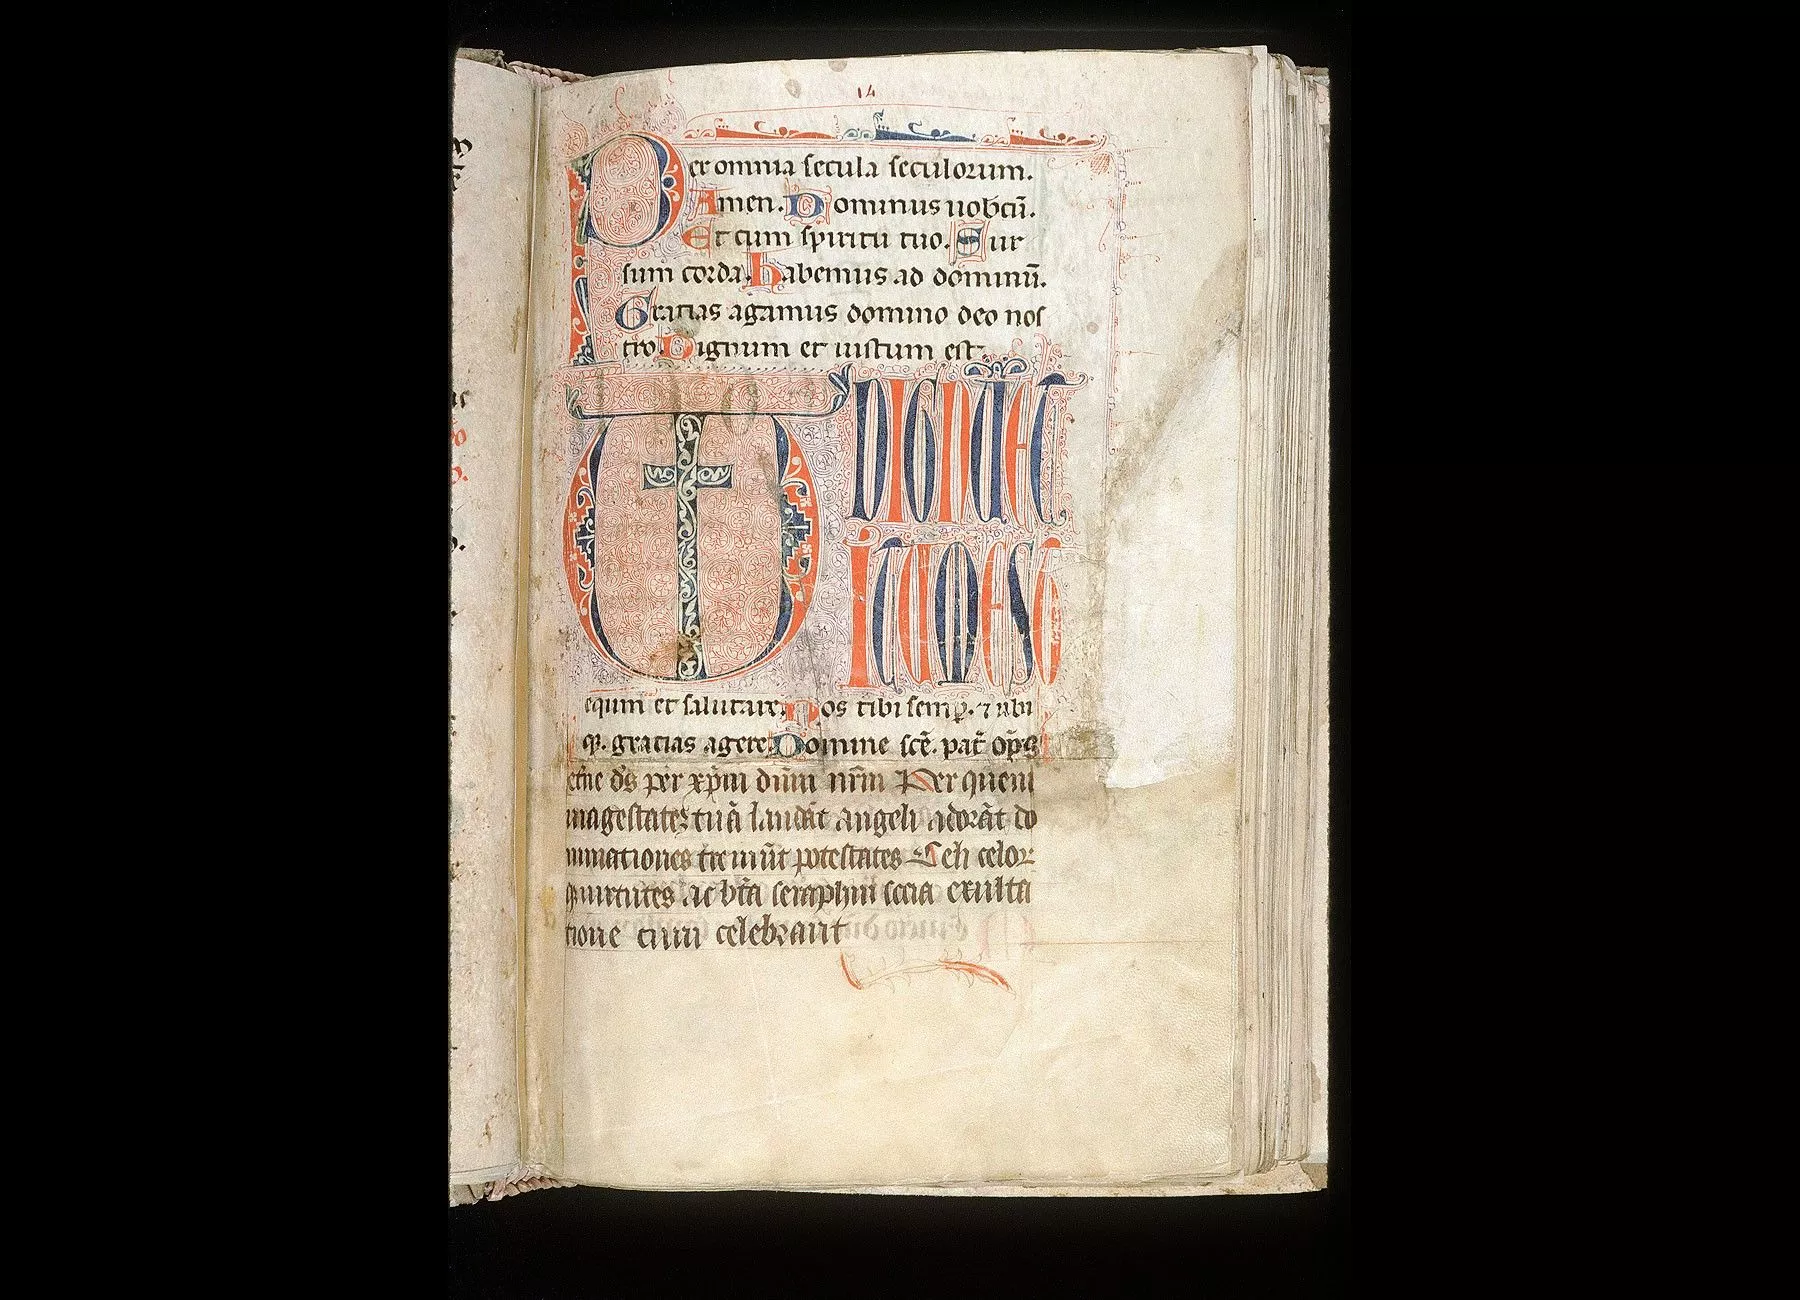 14
Per omnia secula seculorum.
Amen. Dominus uobcū.
Et cum spiritu tuo. Sur
sum corda. habemus ad dominū.
Gratias agamus domino deo nos
tro. Dignum et iustum est
UDIGNŪET
IUSTŪEST
equm et salutare. Nos tibi semp. ⁊ ubi
q. gratias agere. Domine scē. pat̄ op̄s
et̄ne d̄s per xp̄m dn̄m nr̄m Per quem
magestatēs tuā laudāt angeli adorāt do
minationes tremūt potestates Celi celor
q uirtutes ac bt̄a seraphin socia exulta
tione cum celebrant